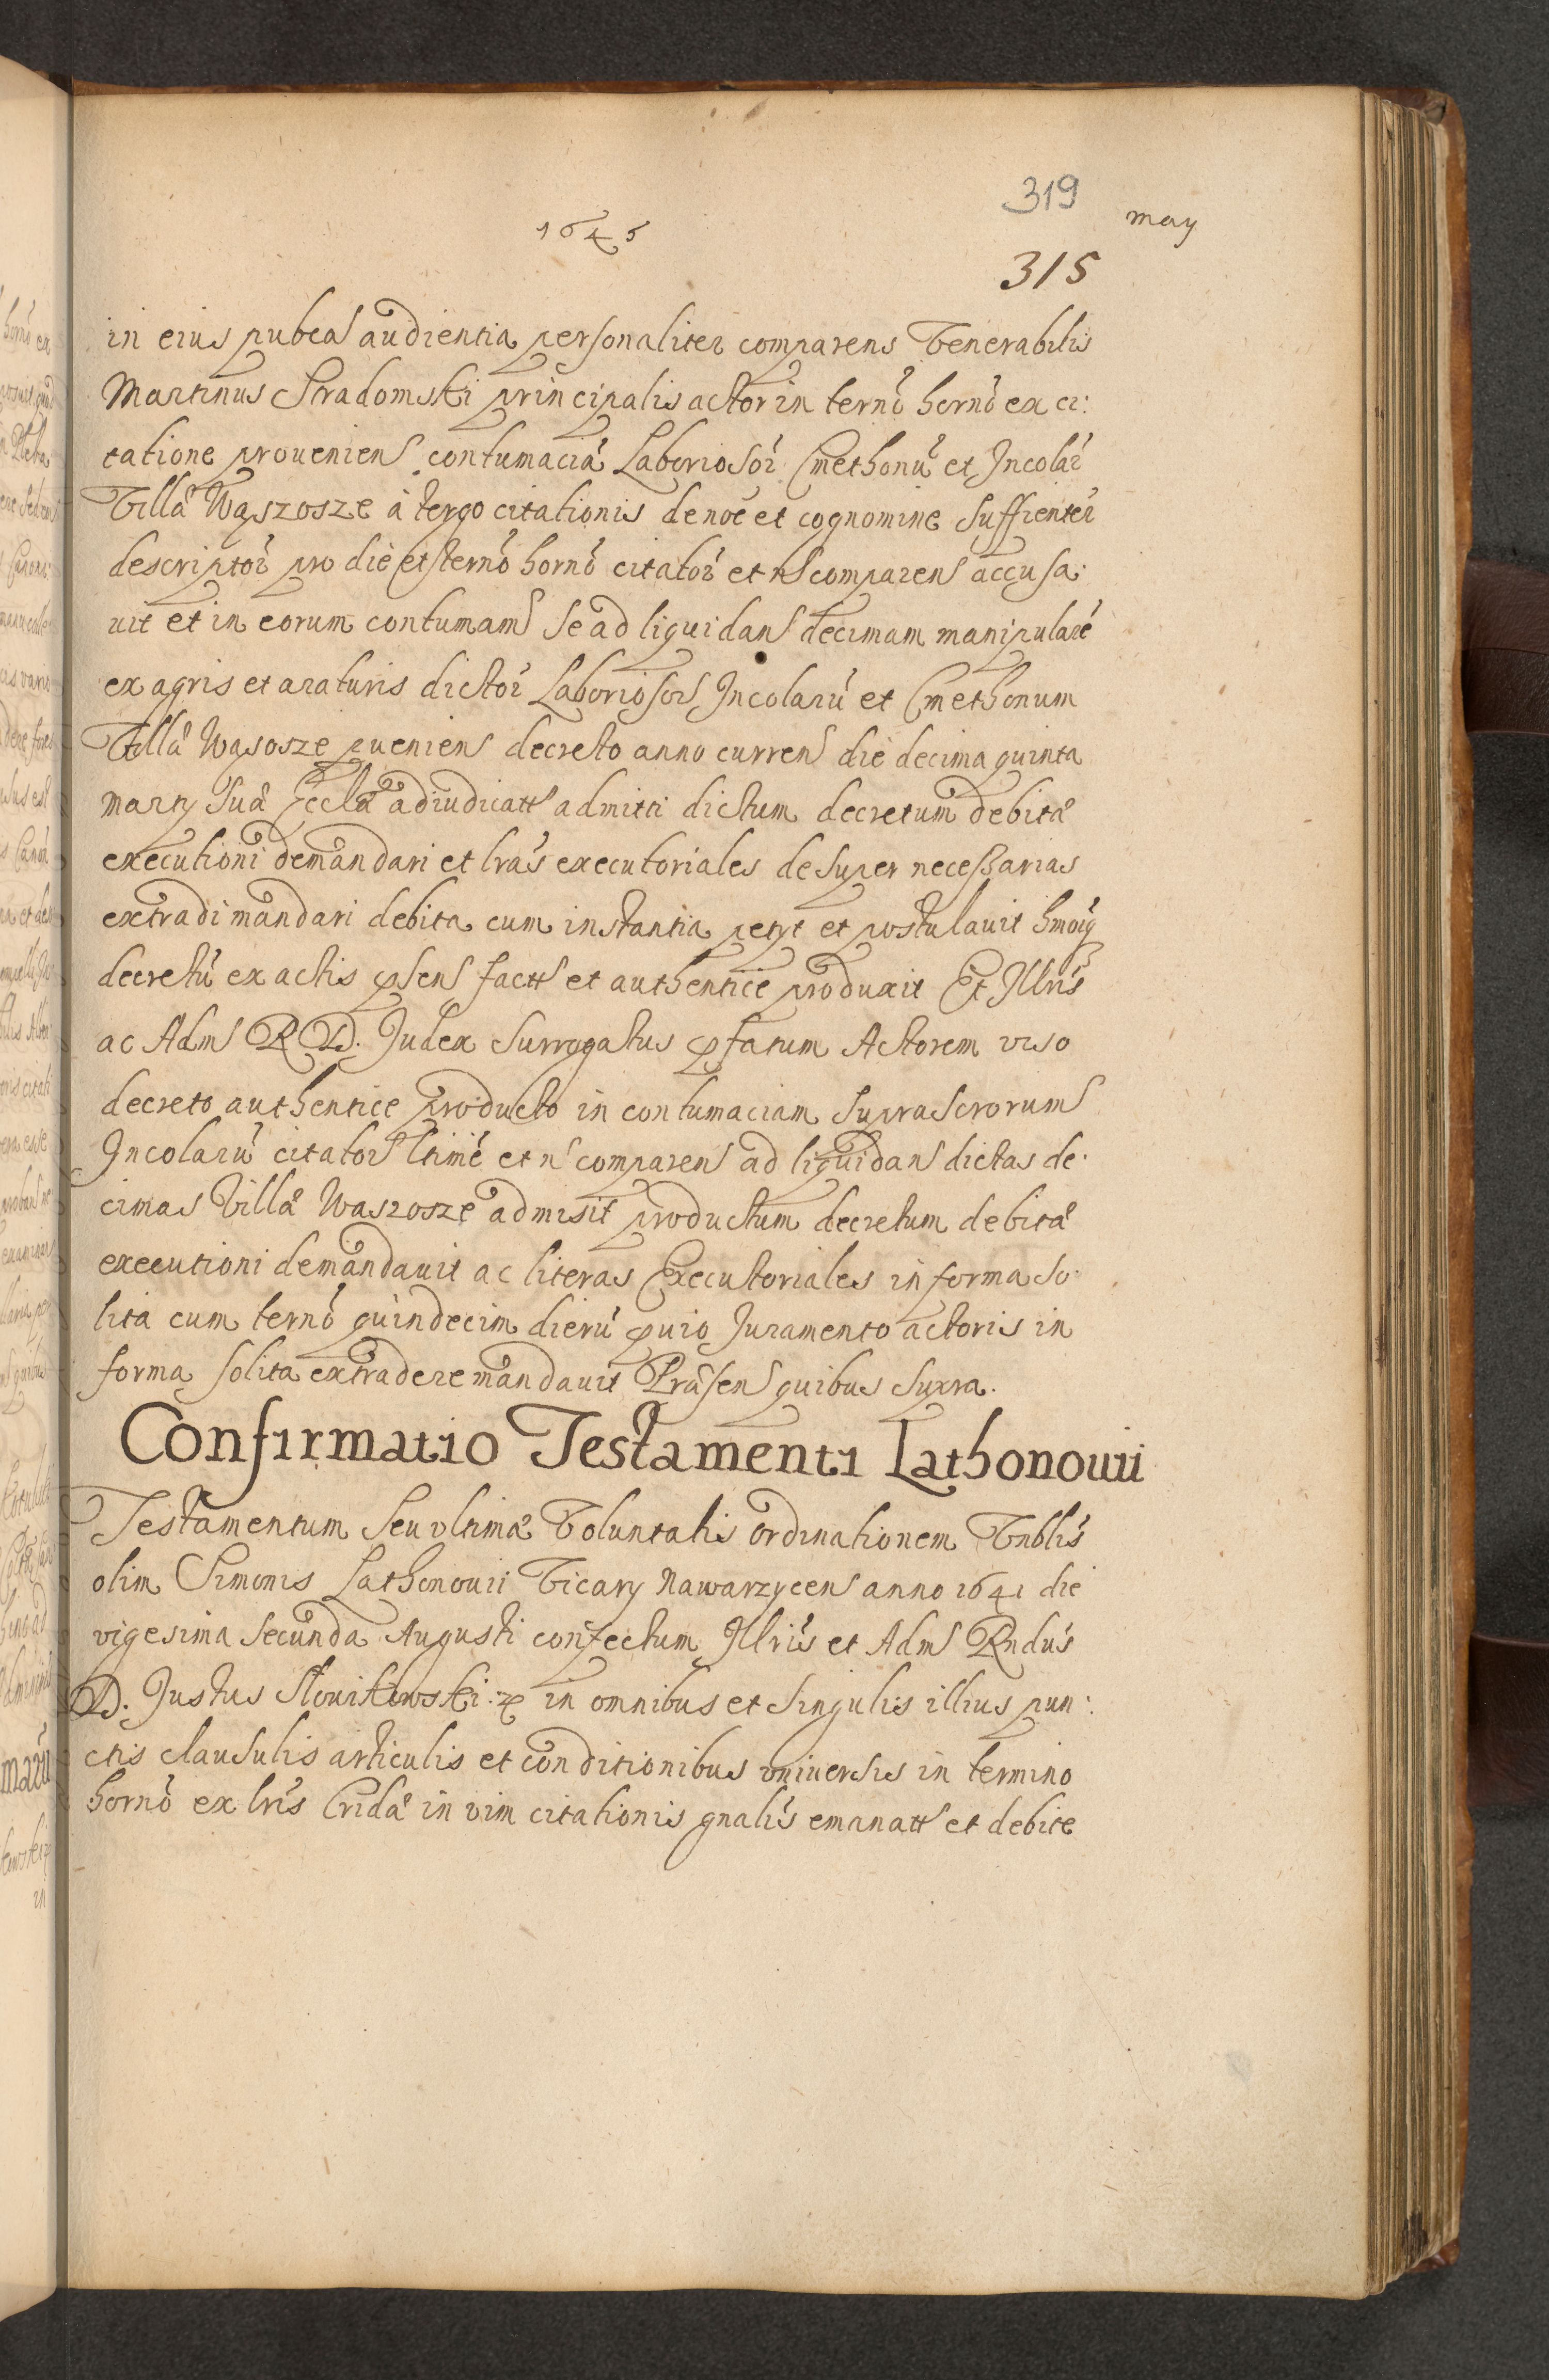 319
may
1645
315
in eius pubca audientia personaliter comparens Venerabilis
Martinus Stradomski principalis actor in termo hormo ex ci:
tatione proueniens contumacia Laboriosor Cmethonu et Incolar
Villæ Wąszosze à tergo citationis de noe et cognomine suffienter
descriptor pro die et termo hormo citator et n comparen accusa:
uit et in eorum contumam se ad liquidan decimam manipulare
ex agris et araturis dictor Laboriosor Incolaru et Cmethonum
Villæ Wąsosze pueniens decreto anno curren die decima quinta
marty suæ Ecclæ adiudicatt admitti dictum decretum debitæ
executioni demandari et lras executoriales desuper neceßarias
extradi mandari debita cum instantia petyt et postulauit hmoiq
decretu ex actis psens factt et authentice produxit Et Illris
ac Adm R D. Judex Surrogatus pfatum Actorem viso
decreto authentice producto in contumaciam suprascrorum
Incolaru citator ltime et n comparen ad liquidan dictas de:
cimas Villæ Waszosze admisit productum decretum debitæ
executioni demandauit ac literas Executoriales in forma so:
lita cum termo quindecim dieru puio Juramento actoris in
forma solita extradere mandauit Præsen quibus supra.
Confirmatio Testamenti Lathonouii
Testamentum seu vltimæ Voluntatis ordinationem Vnblis
olim Simonis Lathonouii Vicary Nawarzycen anno 1641 die
vigesima secunda Augusti confectum Illris et Adm Rndus
D. Justus Słowikowski in omnibus et singulis illius pun:
ctis clausulis articulis et conditionibus vniuersis in termino
hormo ex lris Cridæ in vim citationis gnalis emanatt et debite